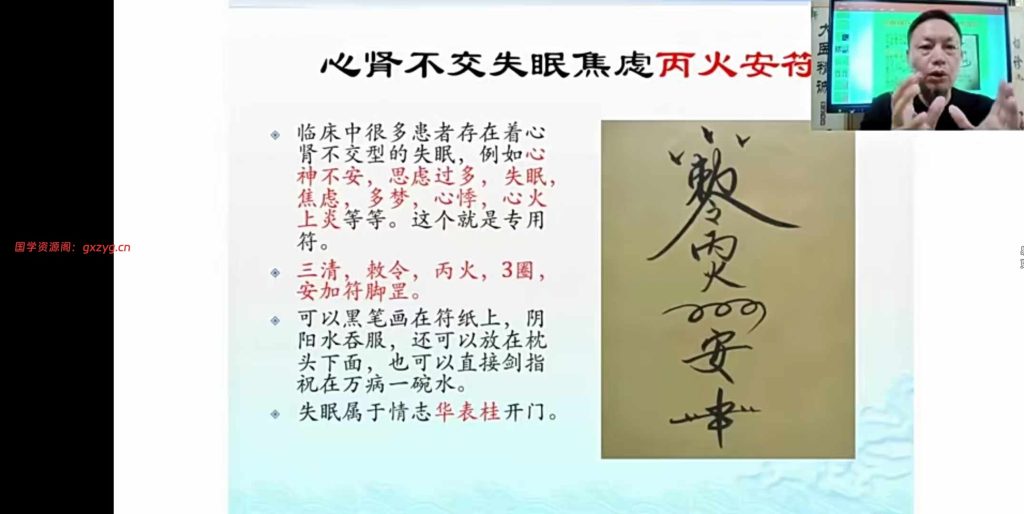 心肾不交失眠焦虑丙火安符
临床中很多患者存在着心
肾不交型的失眠，例如心
神不安，思虑过多，失眠，
焦虑，多梦，心悸，心火
上炎等等。这个就是专用
符。
三清，敕令，丙火，3圈，
安加符脚罡。
可以黑笔画在符纸上，阴
阳水吞服，还可以放在枕
头下面，也可以直接剑指
祝在万病一碗水。
失眠属于情志华表桂开门。
敕令
丙火
安
国学资源阁：gxzyg.cn
大医精诚